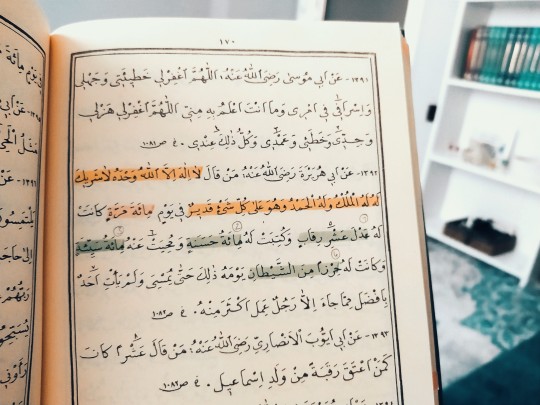 ١٧٠
١٣٩١ - عَنْ اَبِي مُوسَى رَضِيَ اللهُ عَنْهُ: اَللّٰهُمَّ اغْفِرْلِي خَطِيئَتِي وَجَهْلِي
وَاِسْرَافِي فِي اَمْرِي وَمَا اَنْتَ اَعْلَمُ بِهِ مِنِّي اَللّٰهُمَّ اغْفِرْلِي هَزْلِي
وَجِدِّي وَخَطَئِي وَعَمْدِي وَكُلُّ ذٰلِكَ عِنْدِي ٠ ق ص١٠٨١
١٣٩٢ - عَنْ اَبِي هُرَيْرَةَ رَضِيَ اللهُ عَنْهُ: مَنْ قَالَ لَا اِلٰهَ اِلَّا اللهُ وَحْدَهُ لَاشَرِيكَ
لَهُ لَهُ الْمُلْكُ وَلَهُ الْحَمْدُ وَهُوَ عَلَى كُلِّ شَيْءٍ قَدِيرٌ فِي يَوْمٍ مِائَةَ مَرَّةٍ كَانَتْ
لَهُ عِدْلَ عَشْرِ رِقَابٍ وَكُتِبَتْ لَهُ مِائَةُ حَسَنَةٍ وَمُحِيَتْ عَنْهُ مِائَةُ سَيِّئَةٍ
وَكَانَتْ لَهُ حِرْزًا مِنَ الشَّيْطَانِ يَوْمَهُ ذٰلِكَ حَتَّى يُمْسِيَ وَلَمْ يَأْتِ اَحَدٌ
بِاَفْضَلَ مِمَّا جَاءَ اِلَّا رَجُلٌ عَمِلَ اَكْثَرَ مِنْهُ ٠ ق ص١٠٨٢
١٣٩٣ - عَنْ اَبِي اَيُّوبَ الْاَنْصَارِيِّ رَضِيَ اللهُ عَنْهُ: مَنْ قَالَ عَشْرًا كَانَ
كَمَنْ اَعْتَقَ رَقَبَةً مِنْ وَلَدِ اِسْمَاعِيلَ ٠ ق ص١٠٨٢